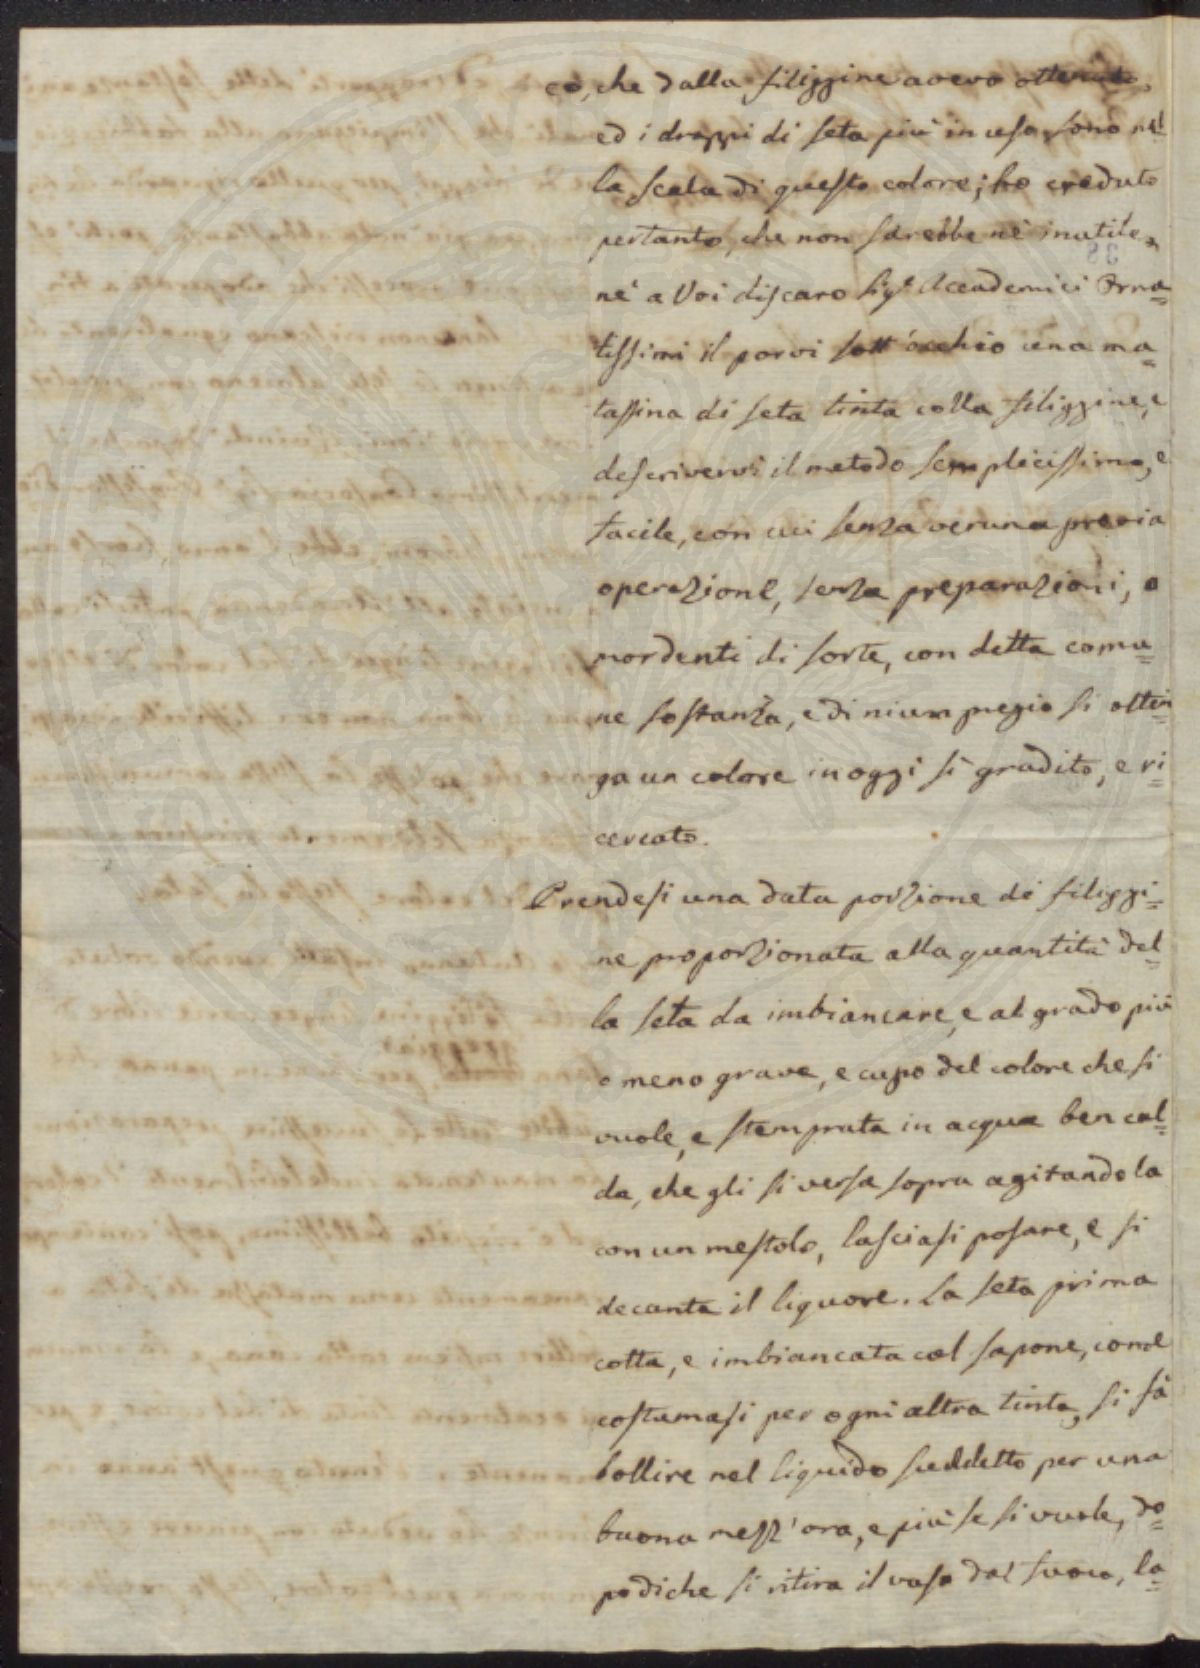 co, che dalla filiggine avevo ottenuto,
ed i drappi di seta più in uso sono nel
la scala di questo colore; ho creduto
pertanto, che non sarebbe nè inutile,
nè a Voi discaro Sig.ri Accademici Orna=
tissimi il porvi sott'occhio una ma=
tassina di seta tinta colla filiggine, e
descrivervi il metodo semplicissimo, e
facile, con cui senza veruna previa
operazione, senza preparazioni, o
mordenti di sorte, con detta comu=
ne sostanza, e di niun pregio si otten
ga un colore in oggi sì gradito, e ri=
cercato.
Prendesi una data porzione di filiggi=
ne proporzionata alla quantità del=
la seta da imbiancare, e al grado più
o meno grave, e cupo del colore che si
vuole, e stemprata in acqua ben cal=
da, che gli si versa sopra agitandola
con un mestolo, lasciasi posare, e si
decanta il liquore. La seta prima
cotta, e imbiancata col sapone, come
costumasi per ogni altra tinta, si fà
bollire nel liquido suddetto per una
buona mezz'ora, e più se si vuole, do=
podiche si ritira il vaso dal fuoco, la=